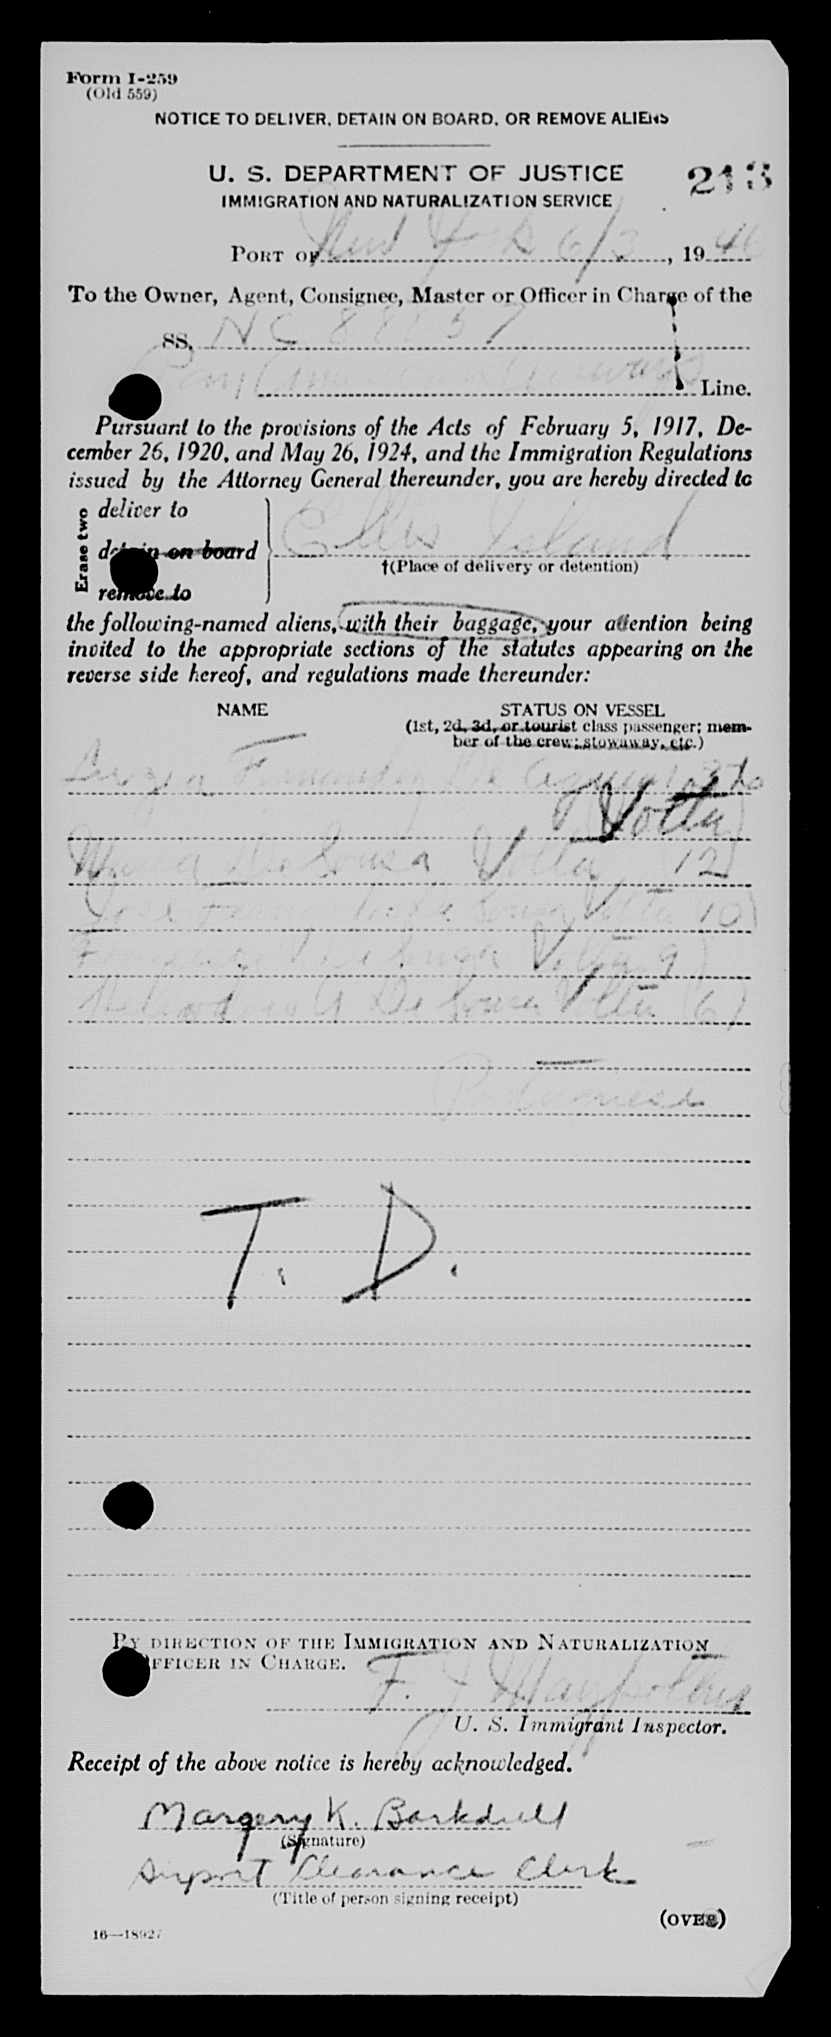 Form I-259
(Old 559)
NOTICE TO DELIVER, DETAIN ON BOARD, OR REMOVE ALIENS
U. S. DEPARTMENT OF JUSTICE
213
IMMIGRATION AND NATURALIZATION SERVICE
PORT OF New York 6/3, 1946
To the Owner, Agent, Consignee, Master or Officer in Charge of the
SS. NC 88857
Pan American Airways Line.
Pursuant to the provisions of the Acts of February 5, 1917, De-
cember 26, 1920, and May 26, 1924, and the Immigration Regulations
issued by the Attorney General thereunder, you are hereby directed to
Erase two
deliver to
detain on board
remove to
Ellis Island
†(Place of delivery or detention)
the following-named aliens, with their baggage, your attention being
invited to the appropriate sections of the statutes appearing on the
reverse side hereof, and regulations made thereunder:
NAME
STATUS ON VESSEL
(1st, 2d, 3d, or tourist class passenger; mem-
ber of the crew; stowaway, etc.)
De
Votta
De Sousa Votta (12)
Jose De Sousa Votta (10)
De Sousa Votta 9)
De Sousa Votta (6)
Portuguese
T. D.
BY DIRECTION OF THE IMMIGRATION AND NATURALIZATION
OFFICER IN CHARGE.
F. J.
U. S. Immigrant Inspector.
Receipt of the above notice is hereby acknowledged.
Margery K. Barkdull
(Signature)
Airport Clearance Clerk
(Title of person signing receipt)
(OVER)
16—18927